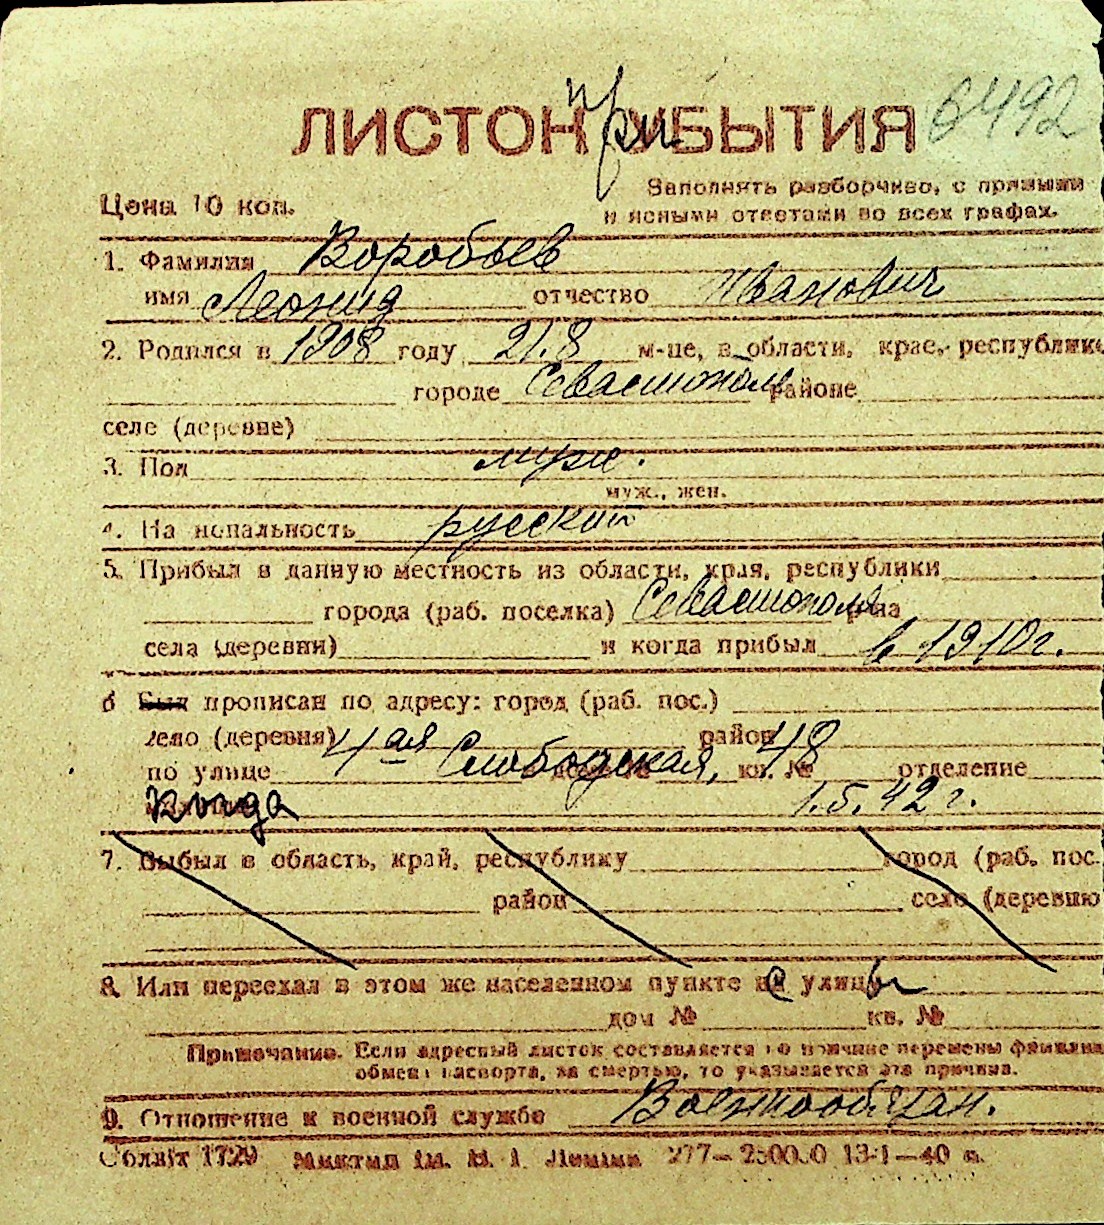 ЛИСТОК прибытия 6492
Цена 10 коп. Заполнять разборчиво, с прямыми
и ясными ответами во всех графах.
1. Фамилия Воробьев
имя Леонид отчество Иванович
2. Родился в 1908 году 21.8 м-це, в области, крае, республике
городе Севастополе районе
селе (деревне)
3. Пол муж.
муж., жен.
4. Национальность русский
5. Прибыл в данную местность из области, края, республики
города (раб. поселка) Севастополя р-на
села (деревни) и когда прибыл в 1910 г.
6 Был прописан по адресу: город (раб. пос.)
село (деревня) район
по улице 4ая Слободская, кв. № 48 отделение
когда 1.5.42 г.
7. Выбыл в область, край, республику город (раб. пос.
район село (деревню
8. Или переехал в этом же населенном пункте с улицы
дом № кв. №
Примечание. Если адресный листок составляется по причине перемены фамилии
обмен паспорта, за смертью, то указывается эта причина.
9. Отношение к военной службе Военнообязан.
Соллт 1729 им. В. І. Леніна 277—250000 13-1—40 п.